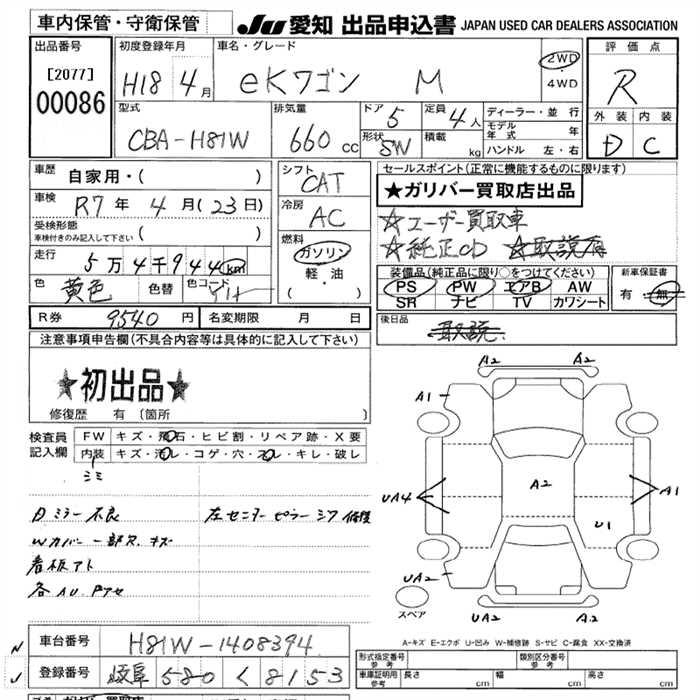 車内保管・守衛保管
JU 愛知 出品申込書 JAPAN USED CAR DEALERS ASSOCIATION
出品番号
[2077]
00086
初度登録年月
H18 4月
車名・グレード
eKワゴン M
2WD
・
4WD
評価点
R
外装 内装
D C
型式
CBA-H81W
排気量
660 cc
ドア
5
定員
4人
形状
5W
積載
kg
ディーラー・並行
モデル年式 年
ハンドル 左・右
車歴
自家用・( )
車検
R7年 4月(23日)
受検形態
車検付きのみ記入して下さい( )
走行
5万4千944km
色
黄色
色替
色コード
シフト
CAT
冷房
AC
燃料
ガソリン
・
軽・油
( )
セールスポイント(正常に機能するものに限ります)
★ガリバー買取店出品
☆ユーザー買取車
☆純正CD ☆取説有
装備品(純正品に限り○をつけてください)
PS PW エアB AW
SR ナビ TV カワシート
新車保証書
有・無
後日品
取説
R券 9540円
名変期限 月 日
注意事項申告欄(不具合内容等は具体的に記入して下さい)
★初出品★
修復歴 有(箇所 )
検査員
記入欄
FW キズ・飛石・ヒビ割・リペア跡・X要
内装 キズ・汚レ・コゲ・穴・スレ・キレ・破レ
シミ
Dミラー不良
左センターピラーシワ修復
Wカバー一部欠キズ
看板アト
各AU
A2 A2
A1
UA4
A2
A1
U1
UA2
UA2 A2
スペア
A-キズ E-エクボ U-凹み W-補修跡 S-サビ C-腐食 XX-交換済
車台番号
H81W-1408394
登録番号
岐阜 580 く 8153
形式指定番号
参考
類別区分番号
参考
車庫証明用
参考
長さ cm
幅 cm
高さ cm